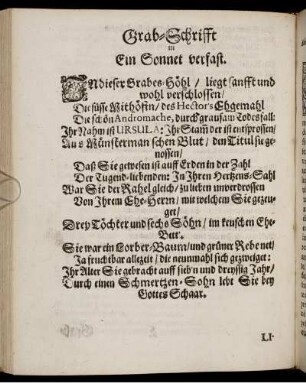 Grab-Schrifft
in
Ein Sonnet verfast.
IN dieser Grabes-Höhl / liegt sanfft und
wohl verschlossen /
Die süsse Withöfin / des Hectors Ehgemahl
Die schön Andromache, durch grausam Todesfall:
Ihr Nahm ist URSULA: Ihr Stam̃ der ist entsprossen /
Aus Münsterman schen Blut / den Titul sie ge-
nossen /
Daß Sie gewesen ist auff Erden in der Zahl
Der Tugend-liebenden: In Ihren Hertzens-Sahl
War Sie der Rahel gleich / zu lieben unverdrossen
Von Ihrem Ehe-Herrn / mit welchem Sie gezeu-
get /
Drey Töchter und sechs Söhn / im keuschen Ehe-
Bett'.
Sie war ein Lorber-Baum / und grüner Rebe nett /
Ja fruchtbar allezeit / die neunmahl sich gezweiget:
Ihr Alter Sie gebracht auff sieb'n und dreyssig Jahr /
Durch einen Schmertzen-Sohn lebt Sie bey
Gottes Schaar.
LI-